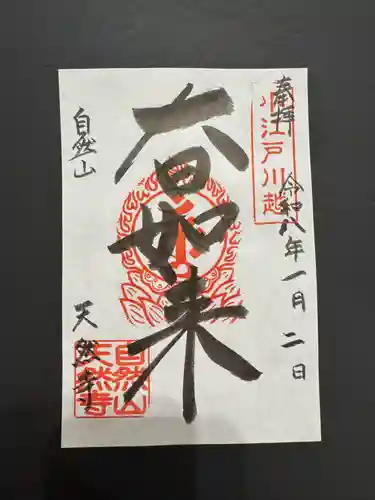 奉拝
小江戸川越
令和八年一月二日
大日如来
自然山
天然寺
自然山
天然寺